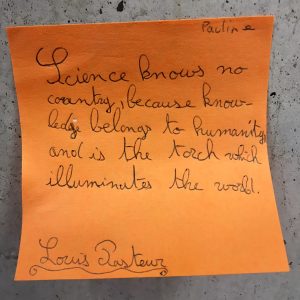 Pauline
Science knows no
country, because know-
ledge belongs to humanity,
and is the torch which
illuminates the world.
Louis Pasteur